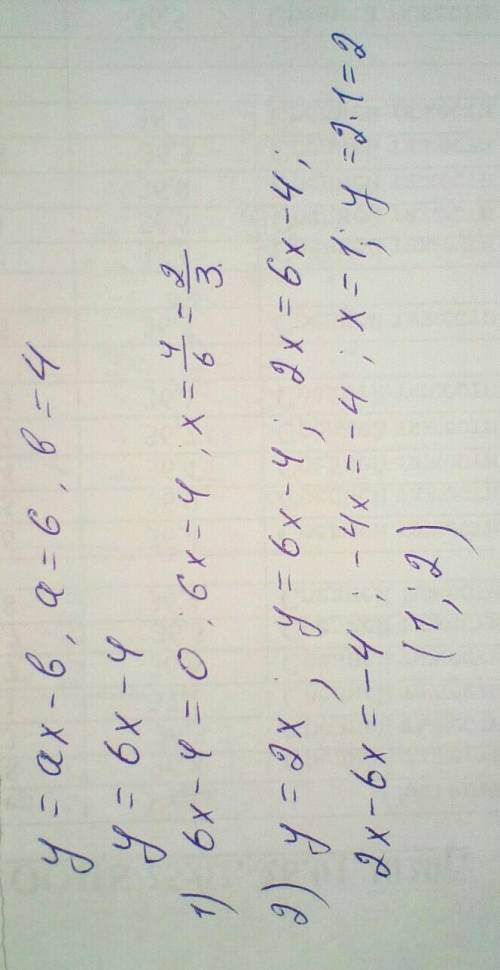 y = ax - b, a = 6, b = 4
y = 6x - 4
1) 6x - 4 = 0; 6x = 4; x = 4/6 = 2/3.
2) y = 2x, y = 6x - 4; 2x = 6x - 4;
2x - 6x = -4; -4x = -4; x = 1; y = 2·1 = 2
(1; 2)